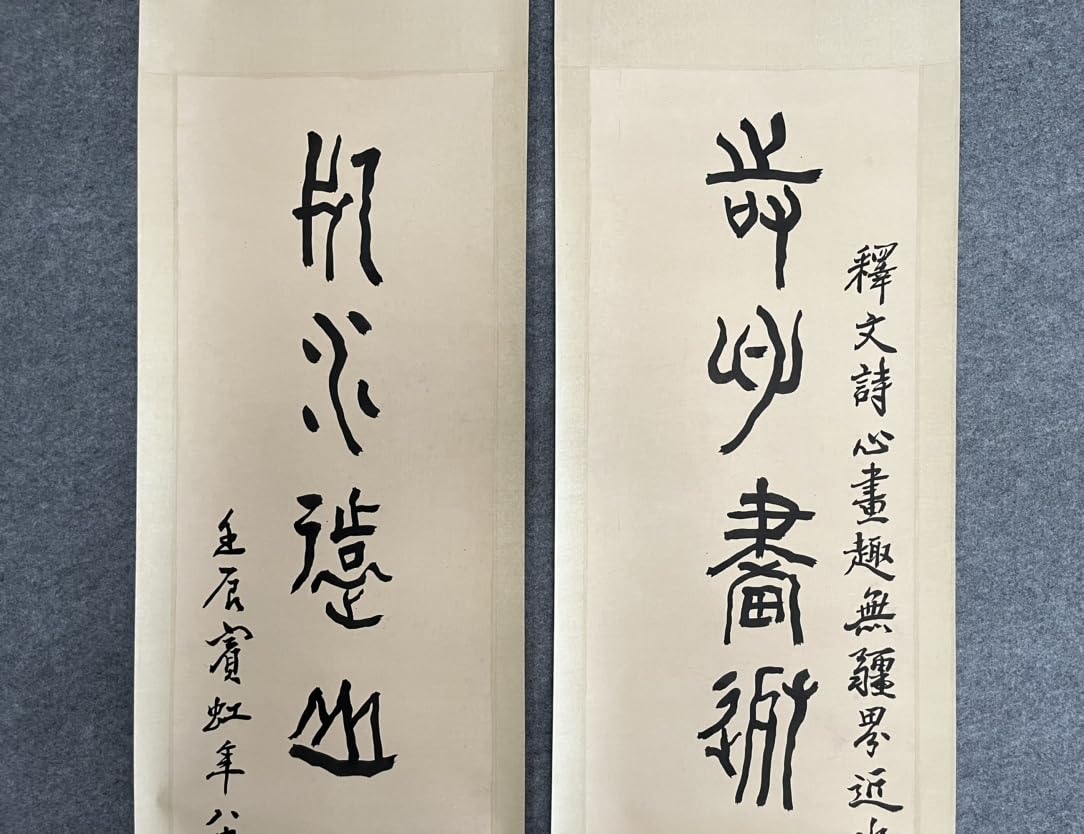 詩心畫趣
釋文詩心畫趣無疆界近
近水遠山
壬辰賓虹年八